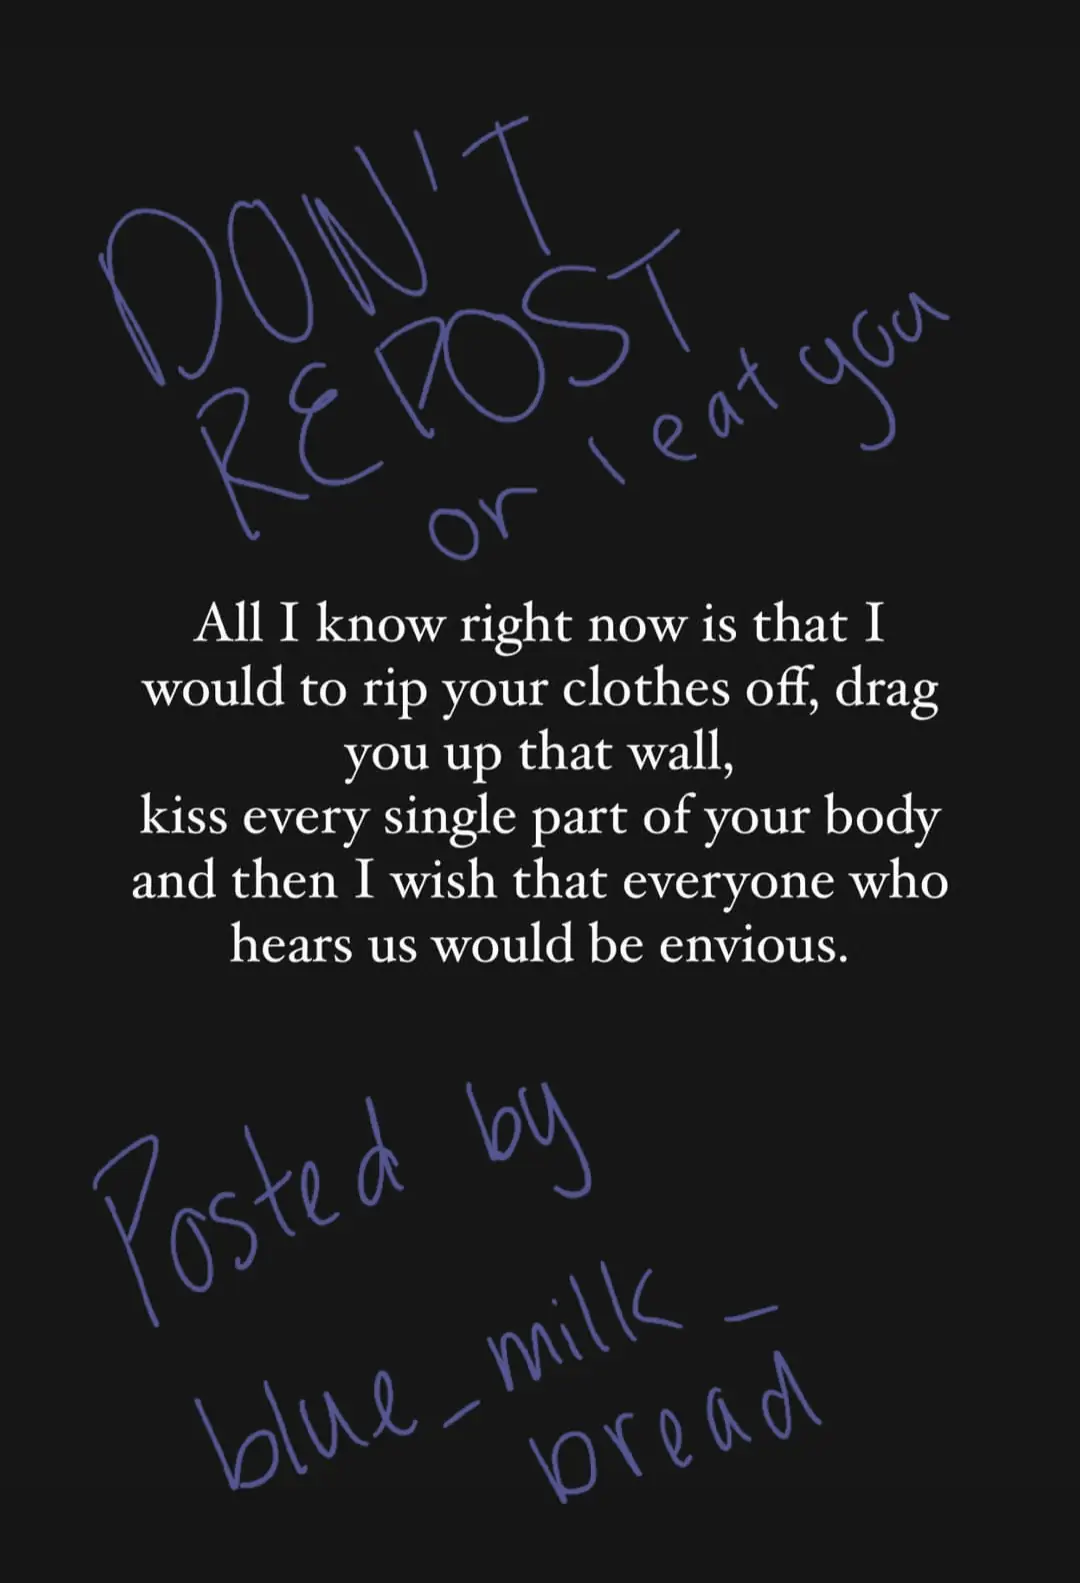 DON'T
REPOST
or I eat you
All I know right now is that I
would to rip your clothes off, drag
you up that wall,
kiss every single part of your body
and then I wish that everyone who
hears us would be envious.
Posted by
blue_milk_
bread